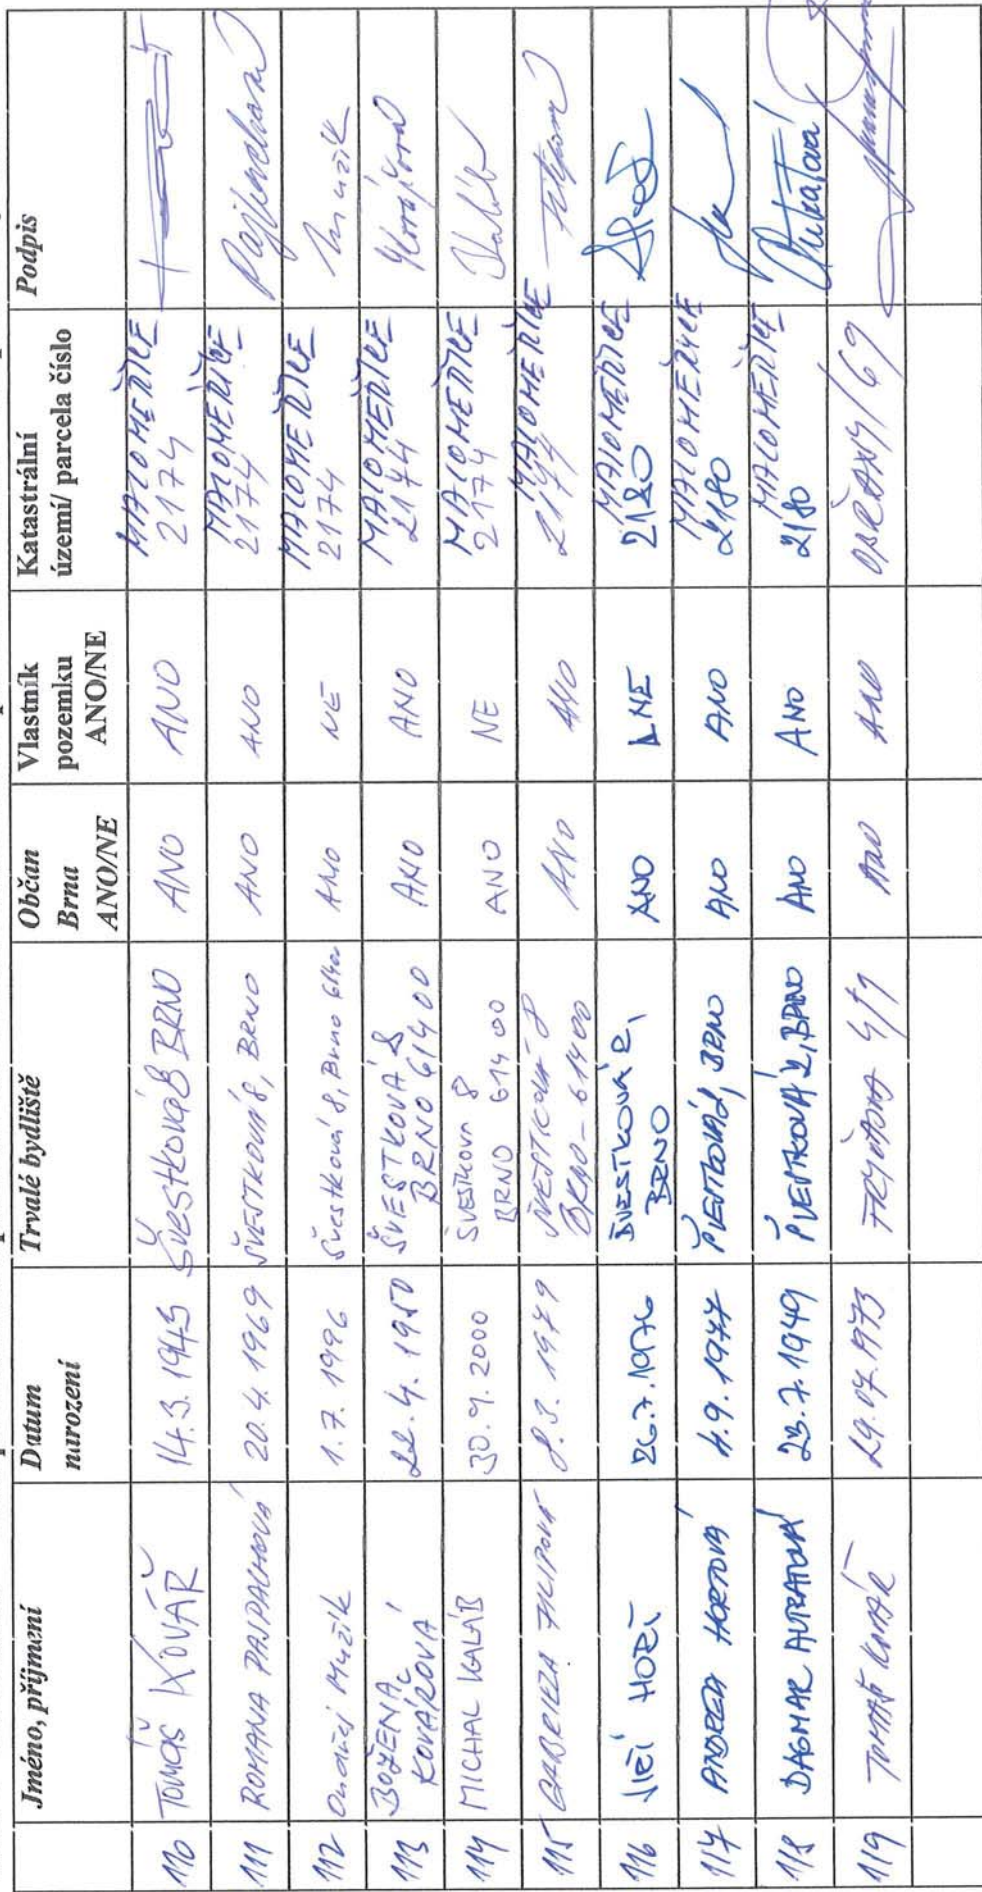 Jméno, příjmení Datum narození Trvalé bydliště Občan Brna ANO/NE Vlastník pozemku ANO/NE Katastrální území/ parcela číslo Podpis
110 TOMÁŠ KOVÁŘ 14.3.1943 Švestková 8 BRNO ANO ANO MALOMĚŘICE 2174
111 ROMANA PAJPACHOVÁ 20.4.1969 ŠVESTKOVÁ 8, BRNO ANO ANO MALOMĚŘICE 2174
112 Ondřej Muzik 1.7.1996 Švestková 8, Brno 61400 ANO NE MALOMĚŘICE 2174 Muzik
113 BOŽENA KOVÁŘOVÁ 22.4.1950 ŠVESTKOVÁ 8 BRNO 614 00 ANO ANO MALOMĚŘICE 2174 Kovářová
114 MICHAL KALÁB 30.9.2000 ŠVESTKOVA 8 BRNO 614 00 ANO NE MALOMĚŘICE 2174 Kaláb
115 GABRIELA FILIPOVÁ 8.3.1979 ŠVESTKOVÁ 8 BRNO-61400 ANO ANO MALOMĚŘICE 2174
116 JIŘÍ 26.7.1976 ŠVESTKOVÁ 2, BRNO ANO NE MALOMĚŘICE 2180
117 ANDREA HORTOVÁ 4.9.1977 ŠVESTKOVÁ 2, BRNO ANO ANO MALOMĚŘICE 2180
118 DAGMAR 23.7.1949 ŠVESTKOVÁ 2, BRNO ANO ANO MALOMĚŘICE 2180
119 TOMÁŠ 29.07.1973 ANO ANO OBŘANY/69